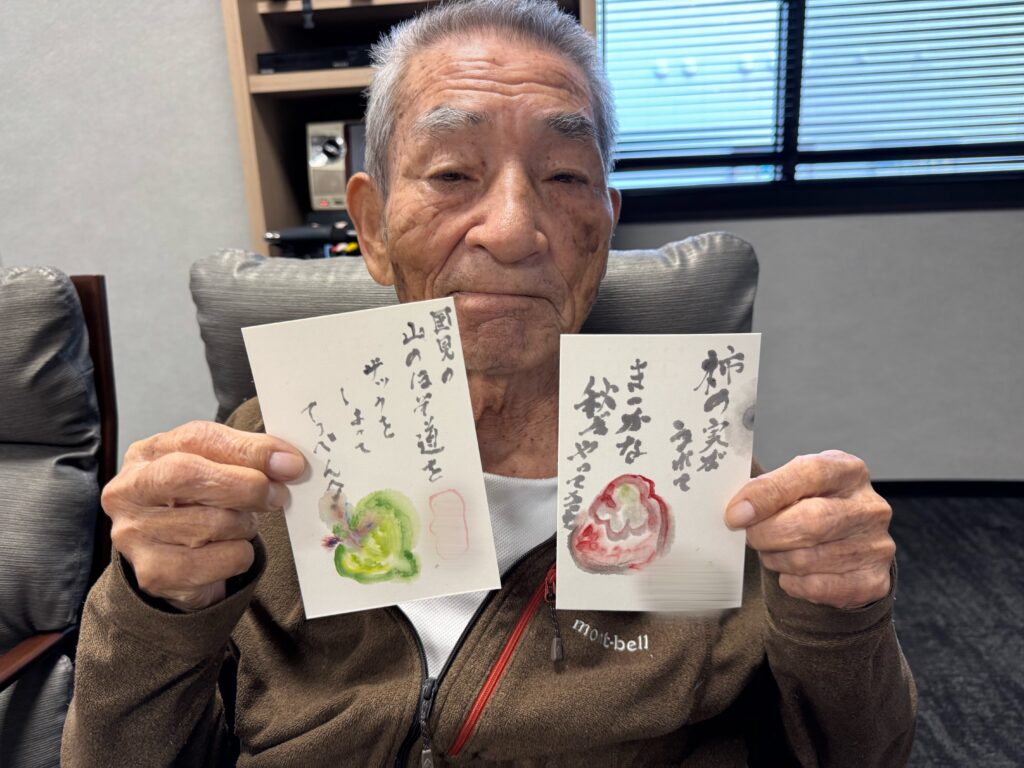 国見の
山のほそ道を
ザックを
しょって
てっぺんへ
柿の実が
うれて
まっかな
秋がやって
mont-bell